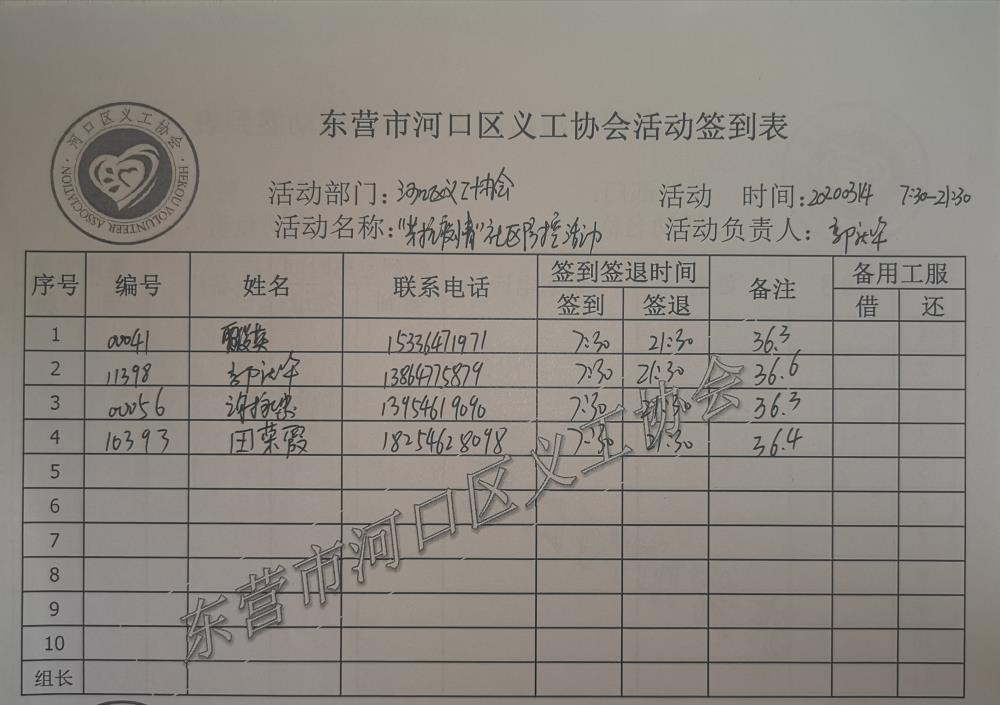 河口区义工协会
HEKOU VOLUNTEER ASSOCIATION
东营市河口区义工协会活动签到表
活动部门：河口区义工协会 活动 时间：20200314 7:30-21:30
活动名称：“抗疫情”社区防控活动 活动负责人：
序号 编号 姓名 联系电话 签到签退时间 备注 备用工服
签到 签退 借 还
1 00041 15336471971 7:30 21:30 36.3
2 11398 13864775879 7:30 21:30 36.6
3 00056 13954619090 7:30 21:30 36.3
4 10393 田荣霞 18254628098 7:30 21:30 36.4
5
6
7
8
9
10
组长
东营市河口区义工协会